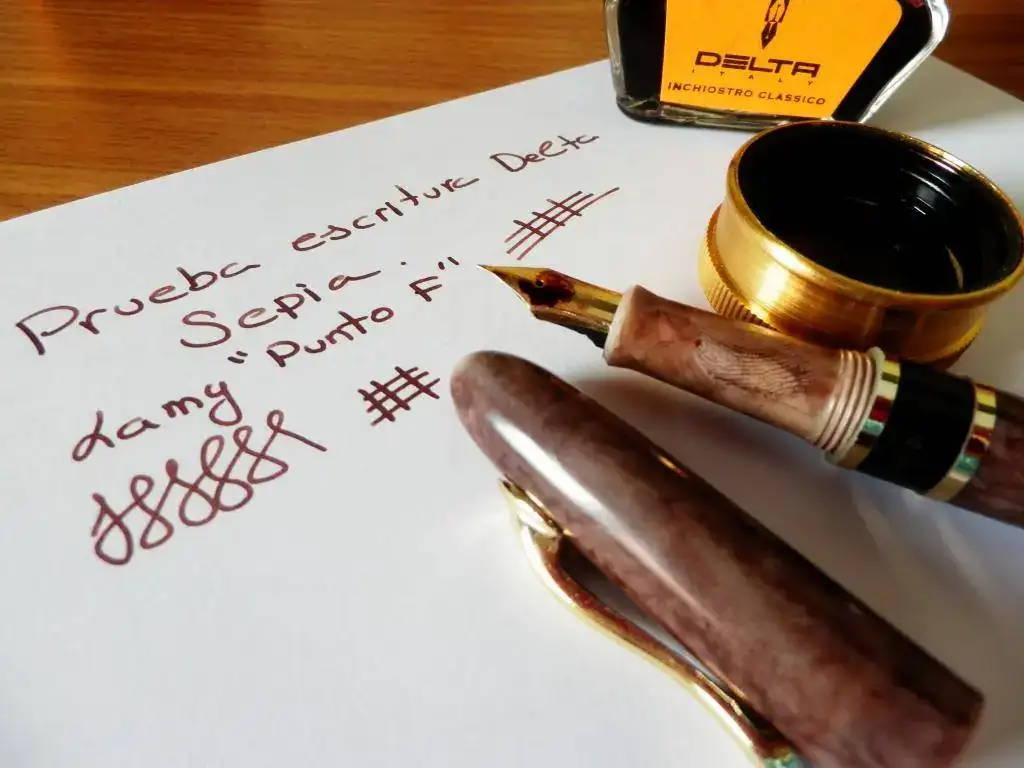 DELTA
ITALY
INCHIOSTRO CLASSICO
Prueba escritura Delta
Sepia.
Lamy "Punto F"